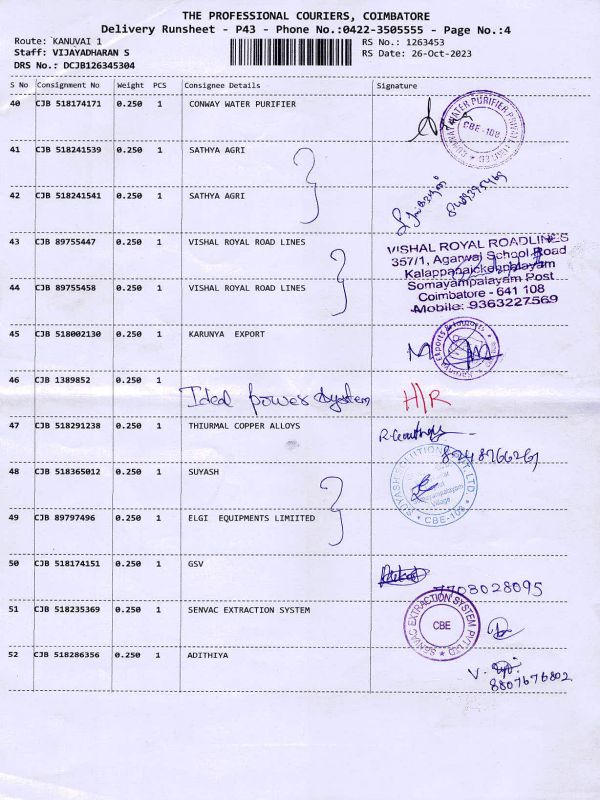 THE PROFESSIONAL COURIERS, COIMBATORE
Delivery Runsheet - P43 - Phone No.:0422-3505555 - Page No.:4
Route: KANUVAI 1
RS No.: 1263453
Staff: VIJAYADHARAN S
RS Date: 26-Oct-2023
DRS No.: DCJB126345304
S No Consignment No Weight PCS Consignee Details Signature
40 CJB 518174171 0.250 1 CONWAY WATER PURIFIER
WATER PURIFIER PRIVATE LIMITED
CBE-108
41 CJB 518241539 0.250 1 SATHYA AGRI
42 CJB 518241541 0.250 1 SATHYA AGRI
43 CJB 89755447 0.250 1 VISHAL ROYAL ROAD LINES
VISHAL ROYAL ROADLINES
357/1, Agarwal School Road
Kalappanaickenpalayam
Somayampalayam Post
Coimbatore - 641 108
Mobile: 9363227569
44 CJB 89755458 0.250 1 VISHAL ROYAL ROAD LINES
45 CJB 518002130 0.250 1 KARUNYA EXPORT
46 CJB 1389852 0.250 1
Ideal power system H/R
47 CJB 518291238 0.250 1 THIURMAL COPPER ALLOYS
8248766269
48 CJB 518365012 0.250 1 SUYASH
SUYASH SOLUTIONS PVT. LTD.
Village
CBE-108
49 CJB 89797496 0.250 1 ELGI EQUIPMENTS LIMIITED
50 CJB 518174151 0.250 1 GSV
7708028095
51 CJB 518235369 0.250 1 SENVAC EXTRACTION SYSTEM
SENVAC EXTRACTION SYSTEM PVT LTD
CBE
52 CJB 518286356 0.250 1 ADITHIYA
8807676802